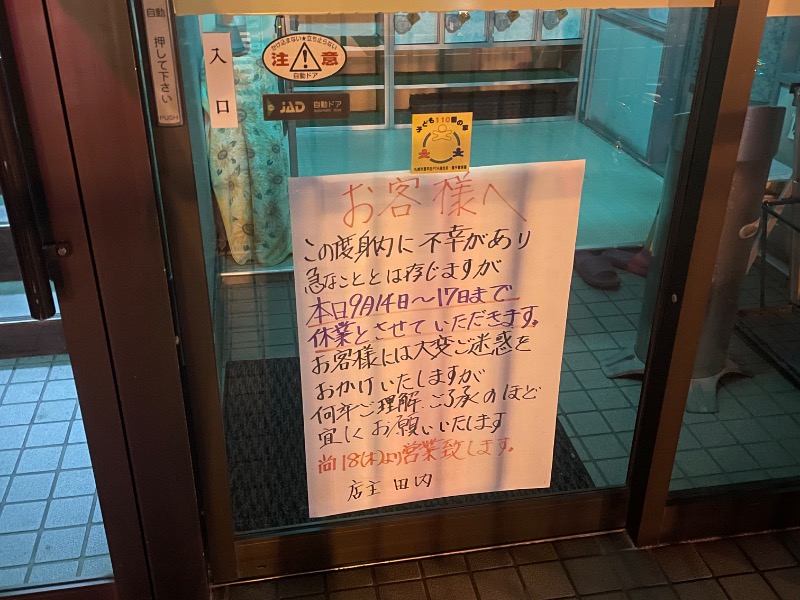 自動
押して下さい
PUSH
入口
かけ込まない★立ち止らない
注意
自動ドア
JAD 自動ドア
こども110番の家
お客様へ
この度身内に不幸があり
急なこととは存じますが
本日9月14日〜17日まで
休業とさせていただきます。
お客様には大変ご迷惑を
おかけいたしますが
何卒ご理解、ご了承のほど
宜しくお願いいたします
尚18(木)より営業致します。
店主 田内